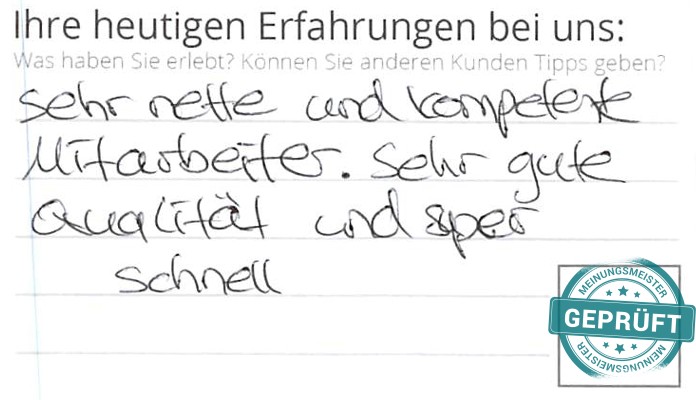 Ihre heutigen Erfahrungen bei uns:
Was haben Sie erlebt? Können Sie anderen Kunden Tipps geben?
Sehr nette und kompetente
Mitarbeiter. Sehr gute
Qualität und super
schnell
MEINUNGSMEISTER
GEPRÜFT
MEINUNGSMEISTER